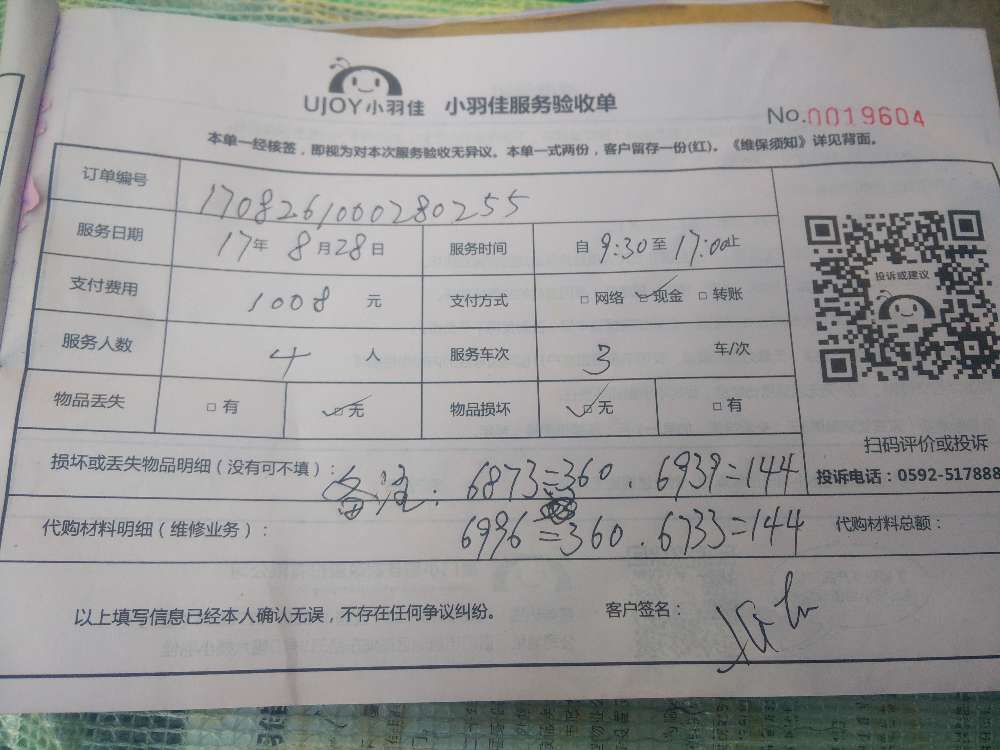 UJOY小羽佳 小羽佳服务验收单
No.0019604
本单一经核签，即视为对本次服务验收无异议。本单一式两份，客户留存一份(红)。《维保须知》详见背面。
订单编号 1708261000280255
服务日期 17年 8月28日 服务时间 自9:30至17:00止
支付费用 1008 元 支付方式 □网络 ☑现金 □转账
投诉或建议
服务人数 4 人 服务车次 3 车/次
物品丢失 □有 ☑无 物品损坏 ☑无 □有
扫码评价或投诉
损坏或丢失物品明细（没有可不填）： 备注：6873=360．6939=144
投诉电话：0592-517888
代购材料明细（维修业务）： 6996=360．6733=144 代购材料总额：
以上填写信息已经本人确认无误，不存在任何争议纠纷。 客户签名：